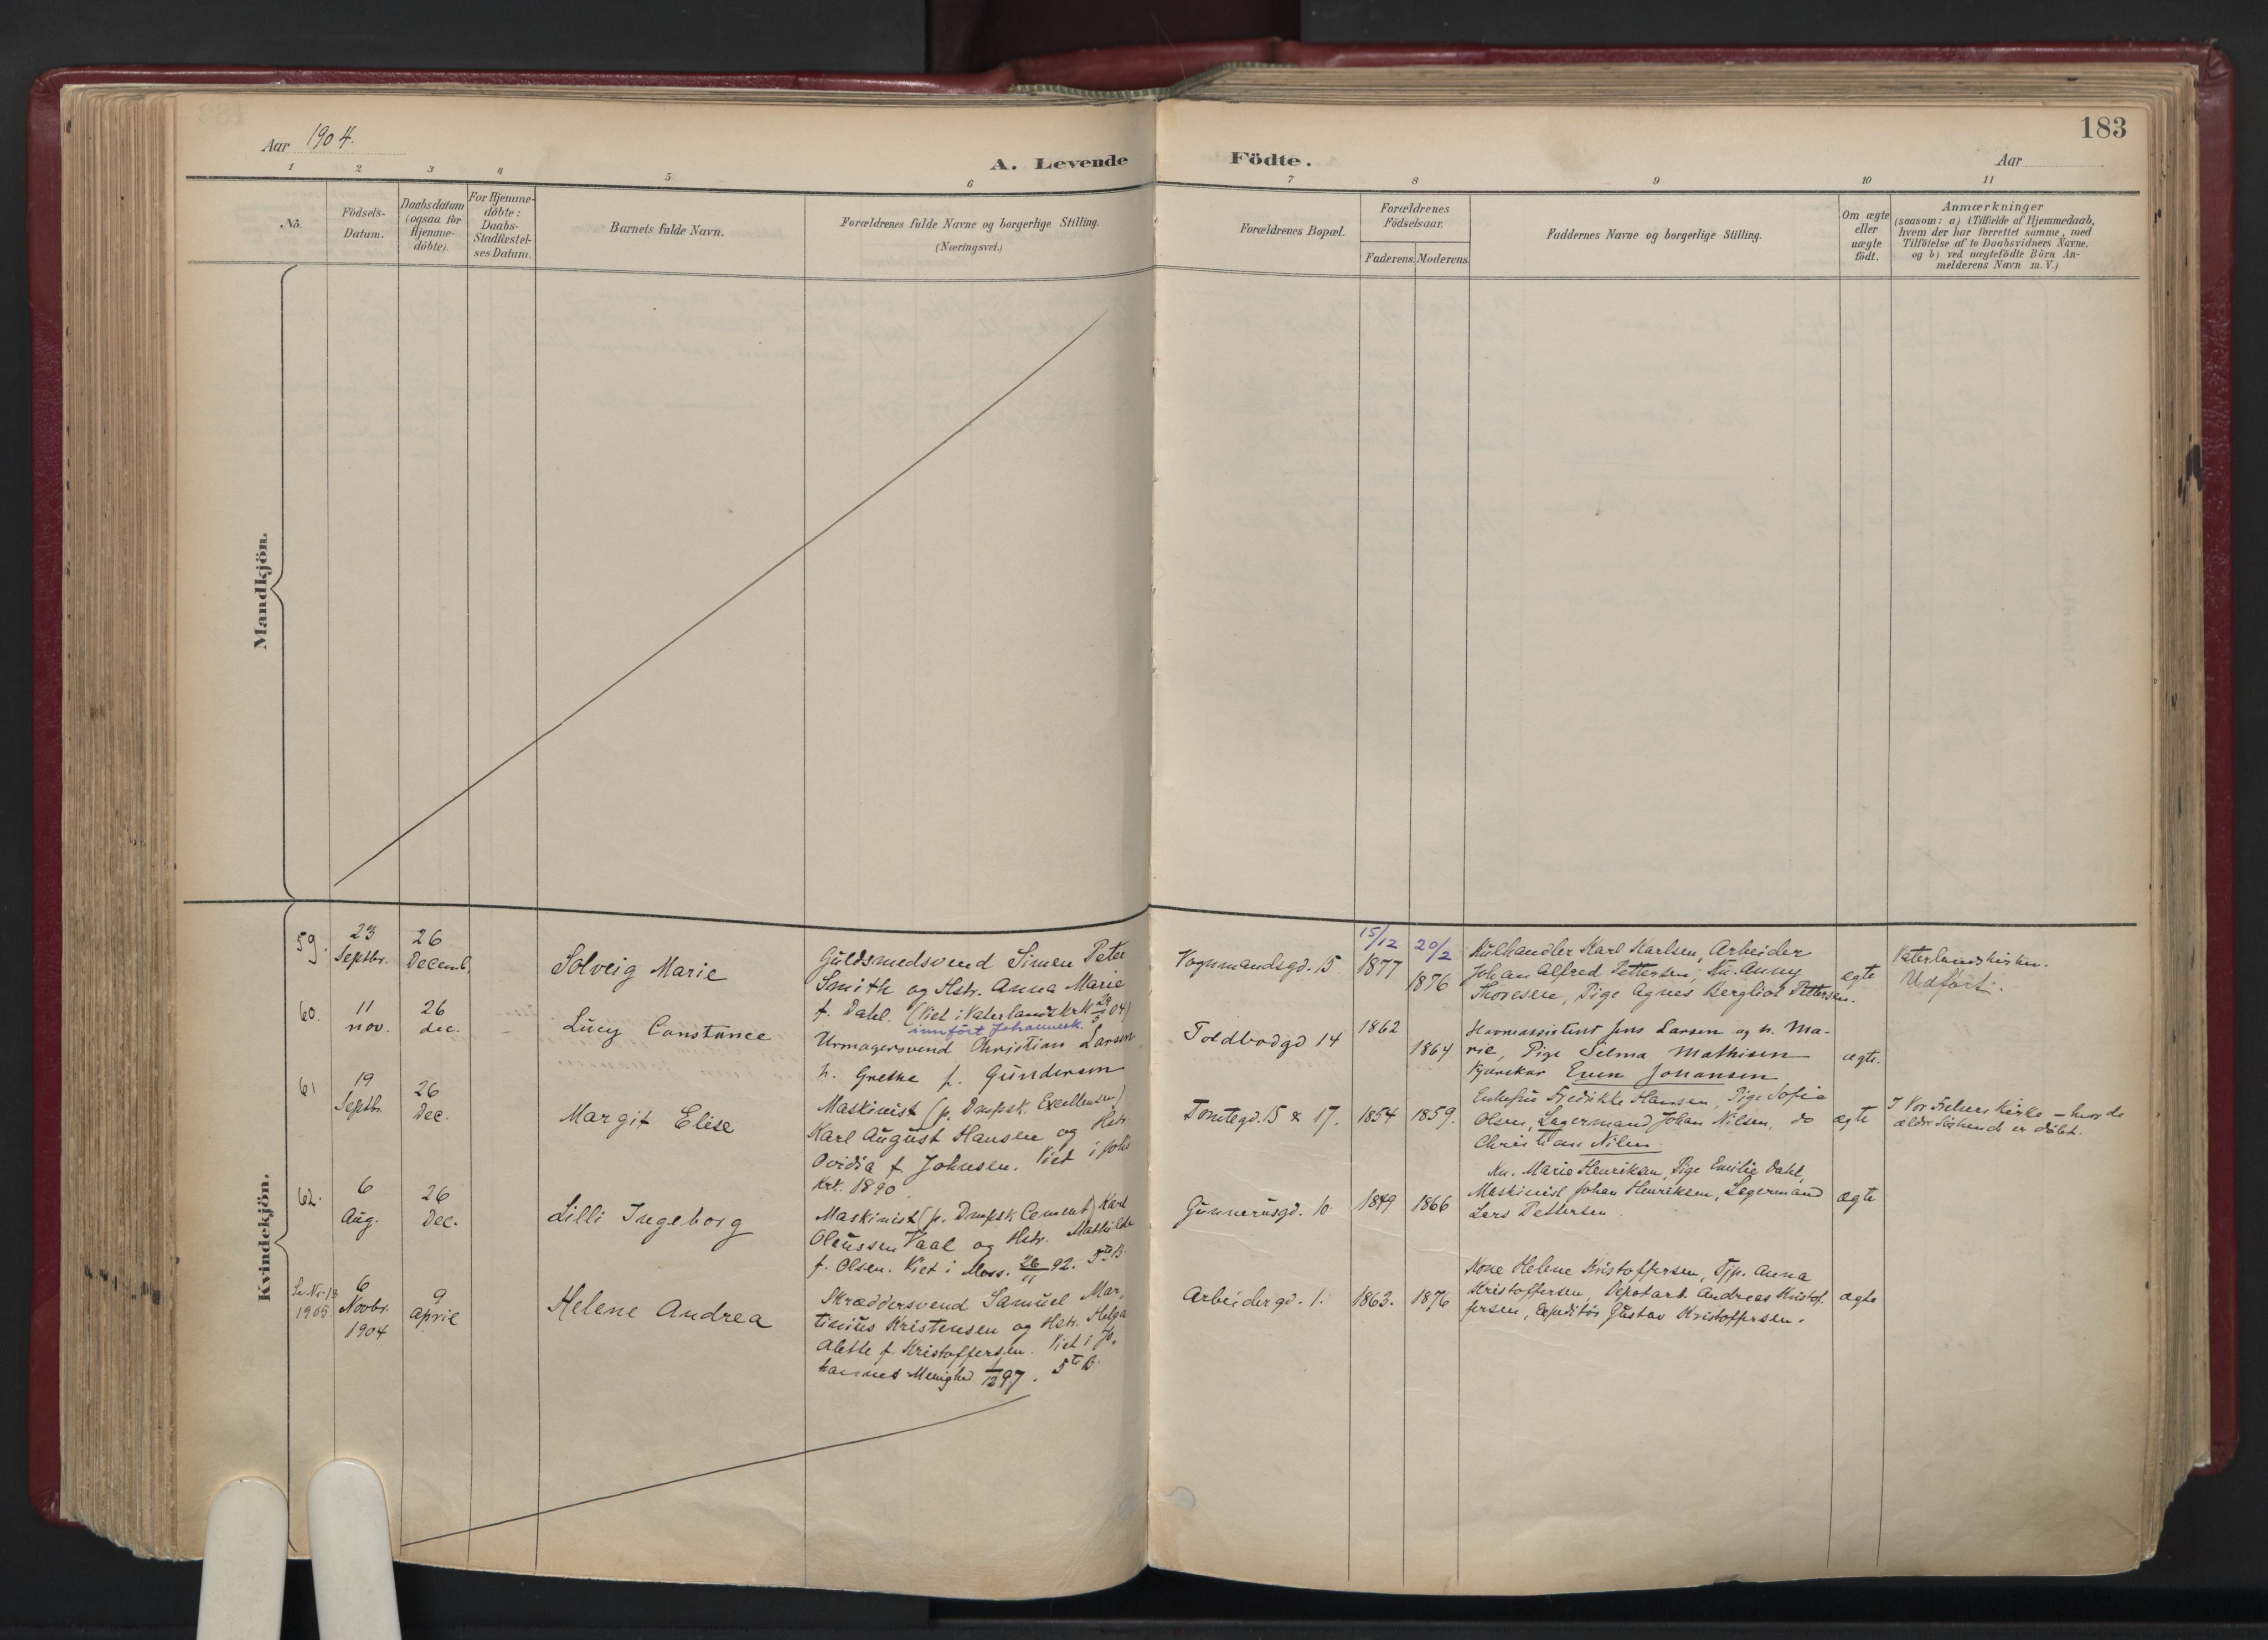 183
Aar 1904.
A. Levende Födte.
Aar
1 2 3 4 5 6 7 8 9 10 11
No.
Födsels-
Datum.
Daabsdatum
(ogsaa for
Hjemme-
döbte).
For Hjemme-
döbte:
Daabs-
Stadfæstel-
ses Datum.
Barnets fulde Navn.
Forældrenes fulde Navne og borgerlige Stilling.
(Næringsvei.)
Forældrenes Bopæl.
Forældrenes
Födselsaar.
Faderens. Moderens.
Faddernes Navne og borgerlige Stilling.
Om ægte
eller
uægte
födt.
Anmærkninger
(saasom: a) i Tilfælde af Hjemmedaab,
hvem der har forrettet samme, med
Tilföielse af to Daabsvidners Navne.
og b) ved uægtefödte Börn An-
melderens Navn m.V.)
Mandkjön.
Kvindekjön.
59.
23
Septbr.
26
Decemb.
Solveig Marie
Guldsmedsvend Simen Peter
Smith og Hstr. Anna Marie
f. Dahl. (Viet i Vaterlands Krk 04)
innført Johannesk.
Vognmandsgd. 15
15/12
1877
20/2
1876
Kulhandler Karl Karlsen, Arbeider
Johan Alfred Pettersen, Ku. Anny
Thoresen, Pige Agnes Bergliot Pettersen.
ægte
Vaterlandskirken.
Udført.
60.
11
nov.
26
dec.
Lucy Constance
Urmagersvend Christian Larsen
h. Grethe f. Gundersen
Toldbodgd 14
1862
1864
Havneassistent Jens Larsen og h. Ma-
rie, Pige Selma Mathisen
Even Johansen
ægte.
61
19
Septbr.
26
Dec.
Margit Elise
Maskinist (p. Dmpsk. Excellensen)
Karl August Hansen og Hstr.
Ovidia f. Johnsen. Viet i Johs
Krk. 1890
Tomtegd. 15 & 17.
1854
1859.
Enkefru Fredrikke Hansen, Pige Sofie
Olsen, Lagermand Johan Nilsen, do
Christian Nilsen.
ægte
I Vor Frelsers Kirke - hvor de
ældre Söskende er döbt.
62.
6
Aug.
26
Dec.
Lilli Ingeborg
Maskinist (p. Dmpsk Cement) Karl
Olaussen Vaal og Hstr. Mathilde
f. Olsen. Viet i Moss. 26/11 92. 5te B.
Gunnerusgd. 10
1849
1866
Ku. Marie Henriksen, Pige Emilie Dahl,
Maskinist Johan Henriksen, Lagermand
Lars Pettersen
ægte
Se No 13
1905.
6
Novbr.
1904
9
April
Helene Andrea
Skræddersvend Samuel Mar-
tinius Kristensen og Hstr. Helga
Alette f. Kristoffersen. Viet i Jo-
hannes Menighed 1/12 97. 5te B.
Arbeidergd. 1.
1863.
1876
Kone Helene Kristoffersen, Tjp. Anna
Kristoffersen, Depotarb. Andreas Kristof-
fersen, Expeditör Gustav Kristoffersen.
ægte